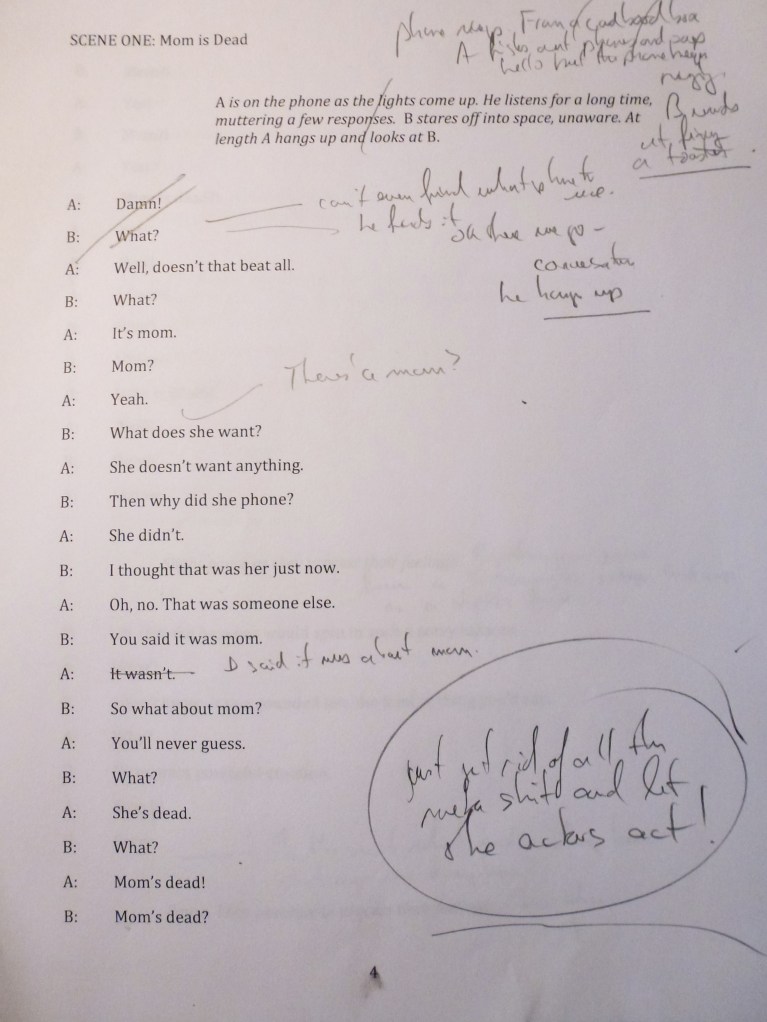 phone rings. From a cardboard box
A fishes out phone and says
hello but the phone keeps
ringing.
SCENE ONE: Mom is Dead
A is on the phone as the lights come up. He listens for a long time,
muttering a few responses. B stares off into space, unaware. At
length A hangs up and looks at B.
B
at
a toaster.
A: Damn!
can't even find what phone to
use.
B: What?
he finds it
conversation
he hangs up
A: Well, doesn't that beat all.
B: What?
A: It's mom.
B: Mom?
There's a mom?
A: Yeah.
B: What does she want?
A: She doesn't want anything.
B: Then why did she phone?
A: She didn't.
B: I thought that was her just now.
A: Oh, no. That was someone else.
B: You said it was mom.
A: It wasn't. I said it was about mom.
B: So what about mom?
A: You'll never guess.
B: What?
A: She's dead.
B: What?
A: Mom's dead!
B: Mom's dead?
just get rid of all this
meta shit and let
the actors act!
4